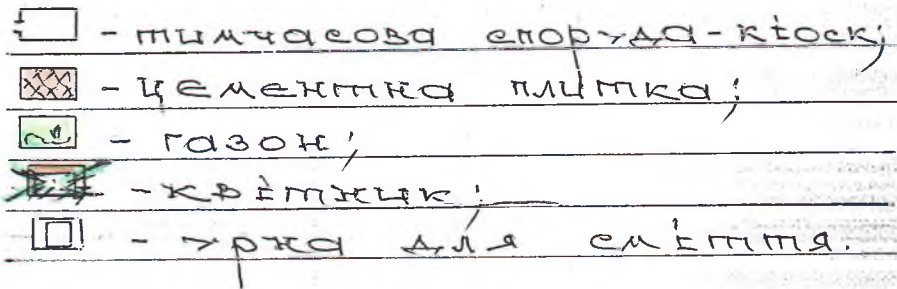 - тимчасова споруда-кіоск;
- цементна плитка;
- газон;
- квітник;
- урна для сміття.